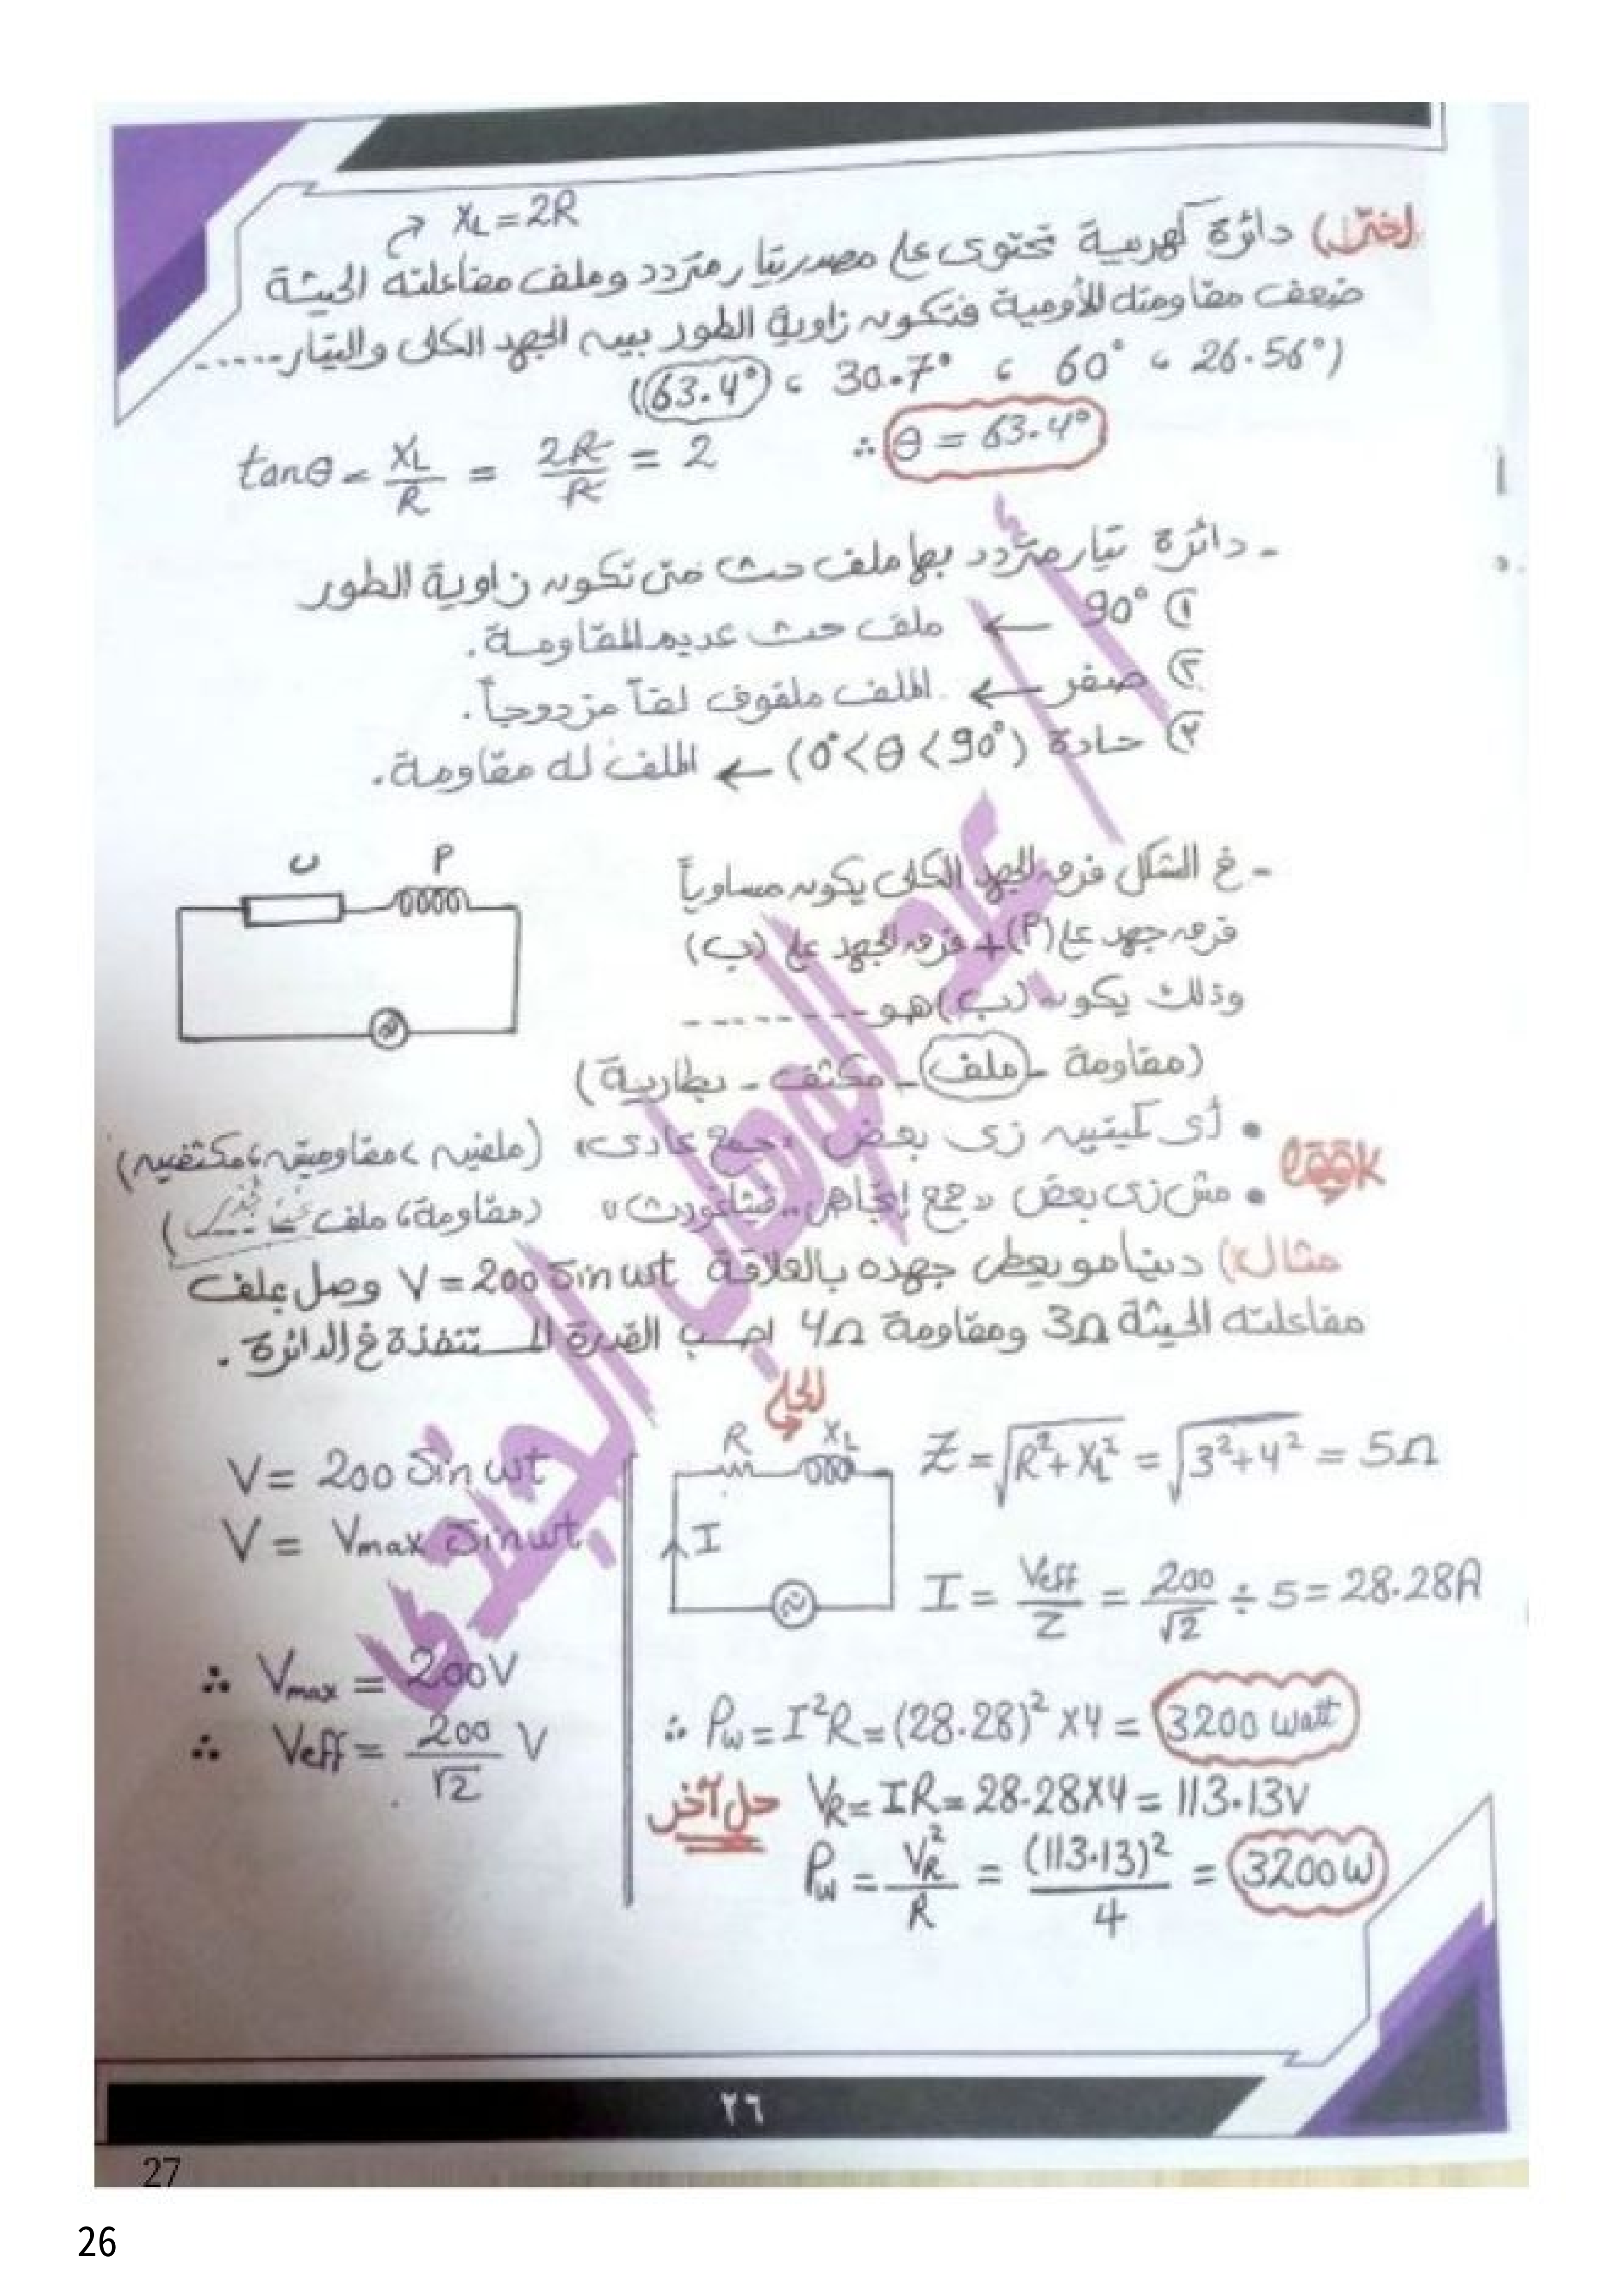 X_L = 2R
(اختر) دائرة كهربية تحتوى على مصدر تيار متردد وملف مفاعلته الحثية
ضعف مقاومته الأومية فتكون زاوية الطور بين الجهد الكلى والتيار .....
(63.4° ، 30.7° ، 60° ، 26.56°)
tanθ = X_L/R = 2R/R = 2 ∴ θ = 63.4°
- دائرة تيار متردد بها ملف حث متى تكون زاوية الطور
① 90° ← ملف حث عديم المقاومة.
② صفر ← الملف ملفوف لفاً مزدوجاً.
③ حادة (0° < θ < 90°) ← الملف له مقاومة.
- فى الشكل فرق الجهد الكلى يكون مساوياً
فرق جهد على (P) + فرق الجهد على (ب)
وذلك يكون (ب) هو --------
(مقاومة - ملف - مكثف - بطارية)
ب P
• أى كميتين زى بعض "جمع عادى" (ملفين، مقاومتين، مكثفين)
• مش زى بعض "جمع إتجاهى .. فيثاغورث" (مقاومة، ملف)
مثال) دينامو يعطى جهده بالعلاقة V = 200 Sin wt وصل بملف
مفاعلته الحثية 3Ω ومقاومة 4Ω احسب القدرة المستنفذة فى الدائرة .
الحل
R X_L
I
Z = √(R² + X_L²) = √(3² + 4²) = 5Ω
I = Veff/Z = 200/√2 ÷ 5 = 28.28A
∴ Pw = I²R = (28.28)² × 4 = 3200 watt
حل آخر V_R = IR = 28.28 × 4 = 113.13V
Pw = V_R²/R = (113.13)²/4 = 3200 W
V = 200 Sin wt
V = Vmax Sin wt
∴ Vmax = 200V
∴ Veff = 200/√2 V
أ / عبدالوهاب الجندى
٢٦
27
26